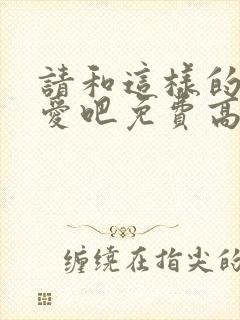 請和這樣的
愛吧免費高
缠绕在指尖的